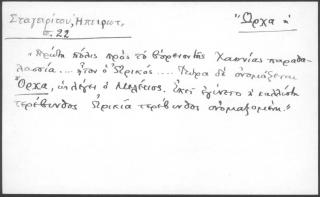 Σταγειρίτου, Ἠπειρωτ.
σ. 22
"Ὄρχα ἡ
"Πρώτη πόλις πρὸς τὸ βόρειον τῆς Χαονίας παραθα-
λασσία... ἦτον ὁ Ὤρικός... Τώρα δὲ ὀνομάζεται
Ὄρχα, ὡς λέγει ὁ Μελέτιος. Ἐκεῖ ἐγίνετο ἡ καλλίστη
τερέβινθος Ὠρικία τερέβινθος ὀνομαζομένη."